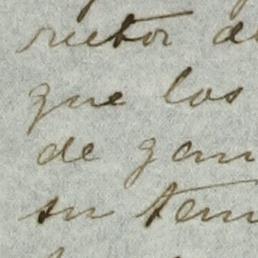 rector de
que los
de gan
su tem